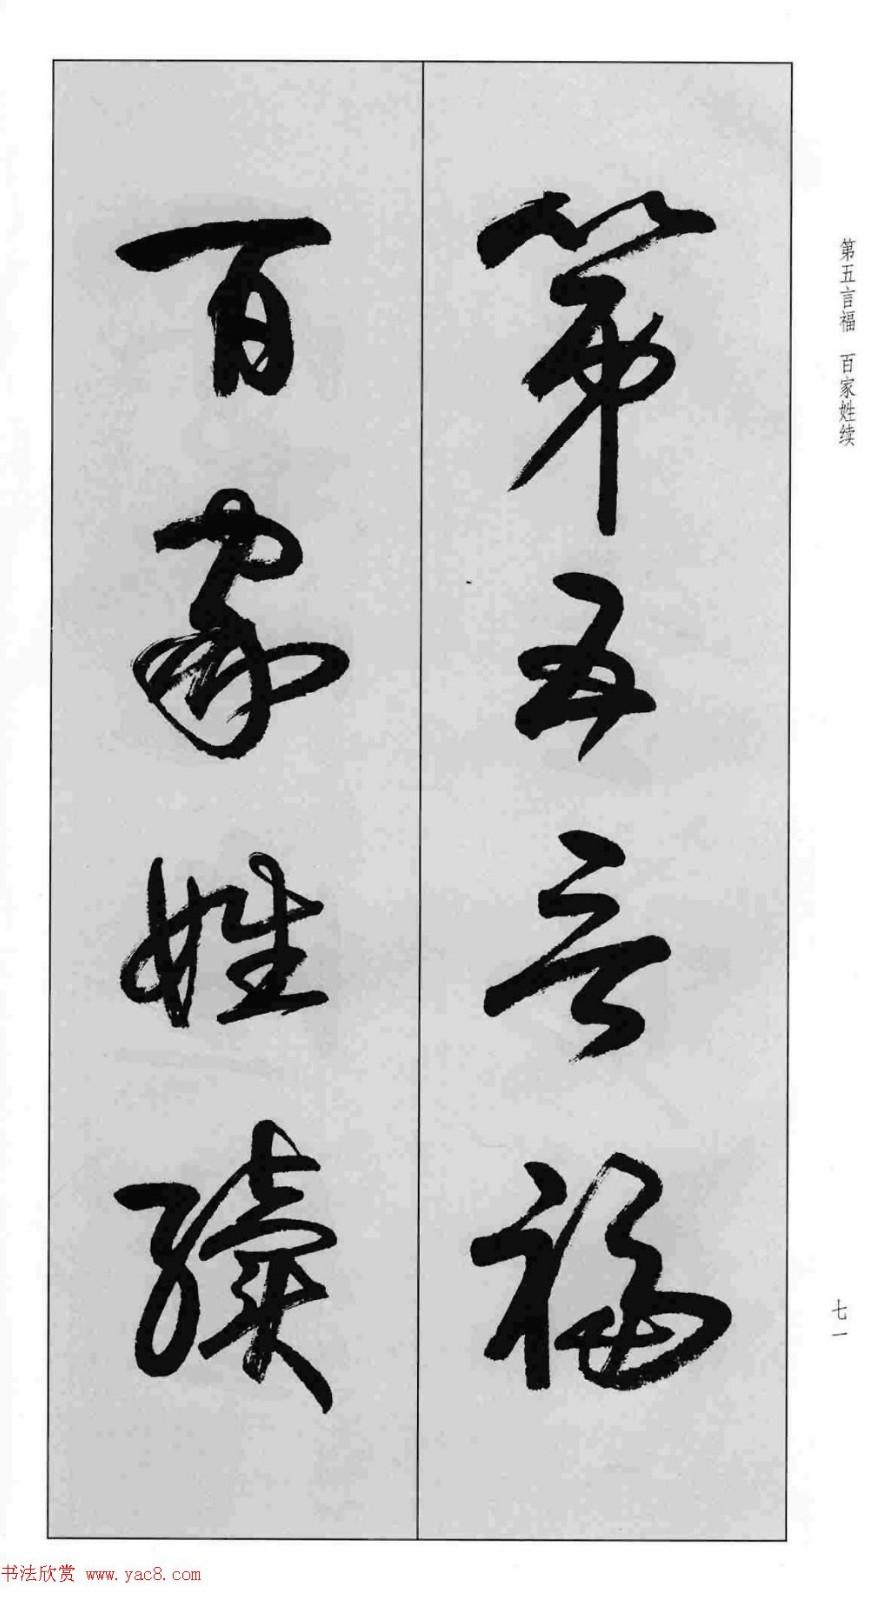 第五言福　百家姓续
第五言福
百家姓續
七一
书法欣赏 www.yac8.com